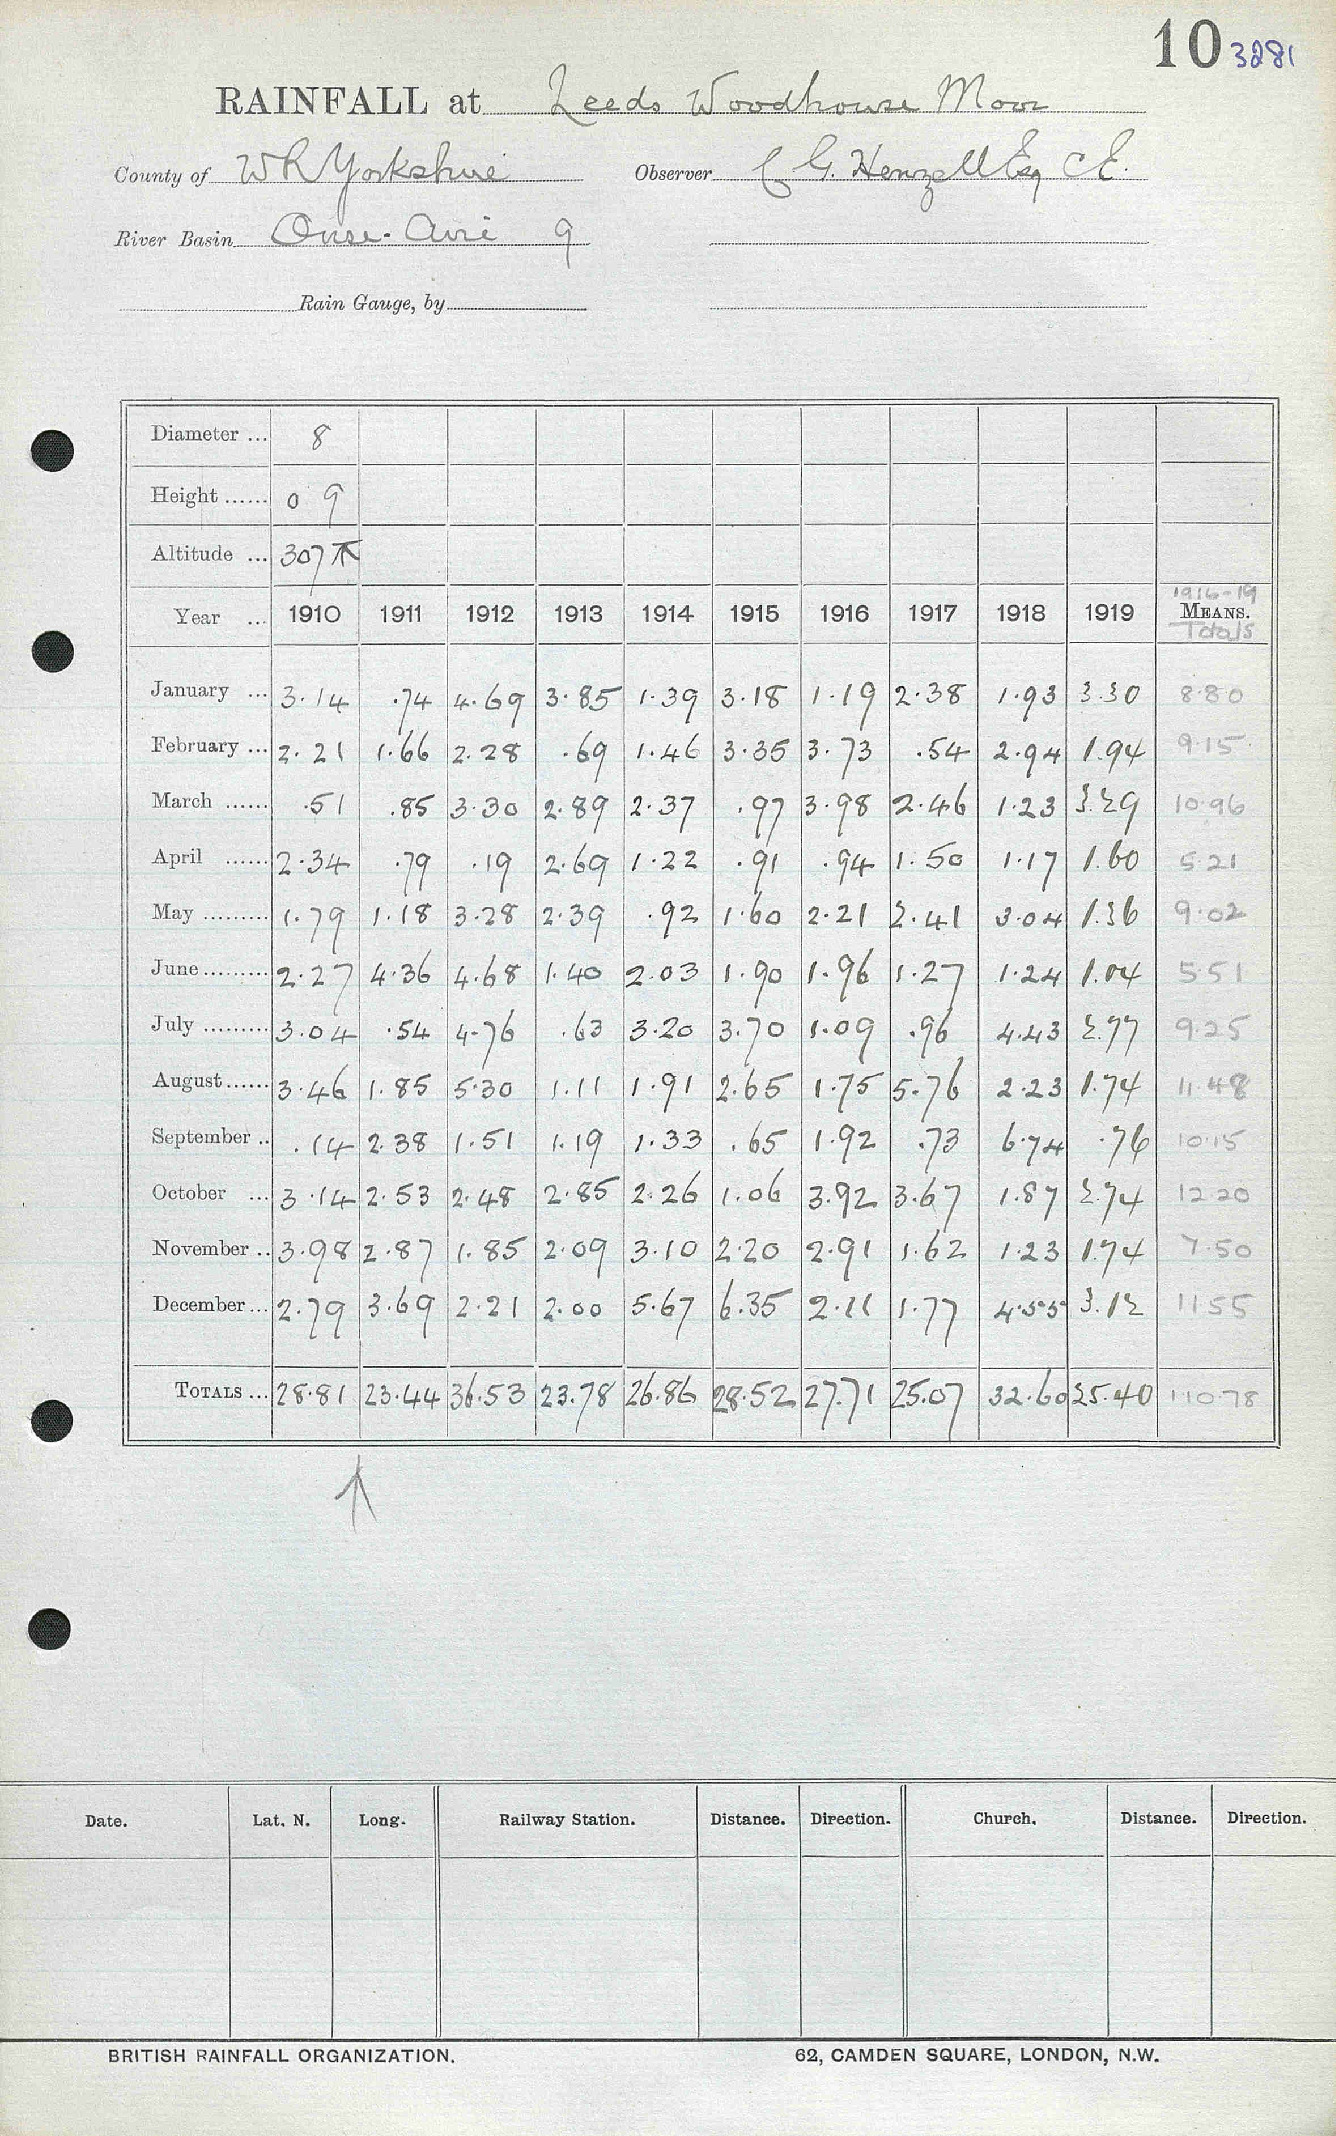 10 3281
RAINFALL at Leeds Woodhouse Moor
County of W R Yorkshire Observer C G. Henzell Esq C E.
River Basin Ouse-Aire 9
Rain Gauge, by
Diameter ... 8
Height ...... 0 9
Altitude ... 307
1916-19
Year ... 1910 1911 1912 1913 1914 1915 1916 1917 1918 1919 MEANS.
Totals
January ... 3.14 .74 4.69 3.85 1.39 3.18 1.19 2.38 1.93 3.30 8.80
February ... 2.21 1.66 2.28 .69 1.46 3.35 3.73 .54 2.94 1.94 9.15
March ...... .51 .85 3.30 2.89 2.37 .97 3.98 2.46 1.23 3.29 10.96
April ...... 2.34 .79 .19 2.69 1.22 .91 .94 1.50 1.17 1.60 5.21
May ......... 1.79 1.18 3.28 2.39 .92 1.60 2.21 2.41 3.04 1.36 9.02
June ......... 2.27 4.36 4.68 1.40 2.03 1.90 1.96 1.27 1.24 1.04 5.51
July ......... 3.04 .54 4.76 .63 3.20 3.70 1.09 .96 4.43 2.77 9.25
August ...... 3.46 1.85 5.30 1.11 1.91 2.65 1.75 5.76 2.23 1.74 11.48
September .. .14 2.38 1.51 1.19 1.33 .65 1.92 .73 6.74 .76 10.15
October ... 3.14 2.53 2.48 2.85 2.26 1.06 3.92 3.67 1.87 2.74 12.20
November .. 3.98 2.87 1.85 2.09 3.10 2.20 2.91 1.62 1.23 1.74 7.50
December ... 2.79 3.69 2.21 2.00 5.67 6.35 2.11 1.77 4.55 3.12 11.55
TOTALS ... 28.81 23.44 36.53 23.78 26.86 28.52 27.71 25.07 32.60 25.40 110.78
Date. Lat. N. Long. Railway Station. Distance. Direction. Church. Distance. Direction.
BRITISH RAINFALL ORGANIZATION. 62, CAMDEN SQUARE, LONDON, N.W.